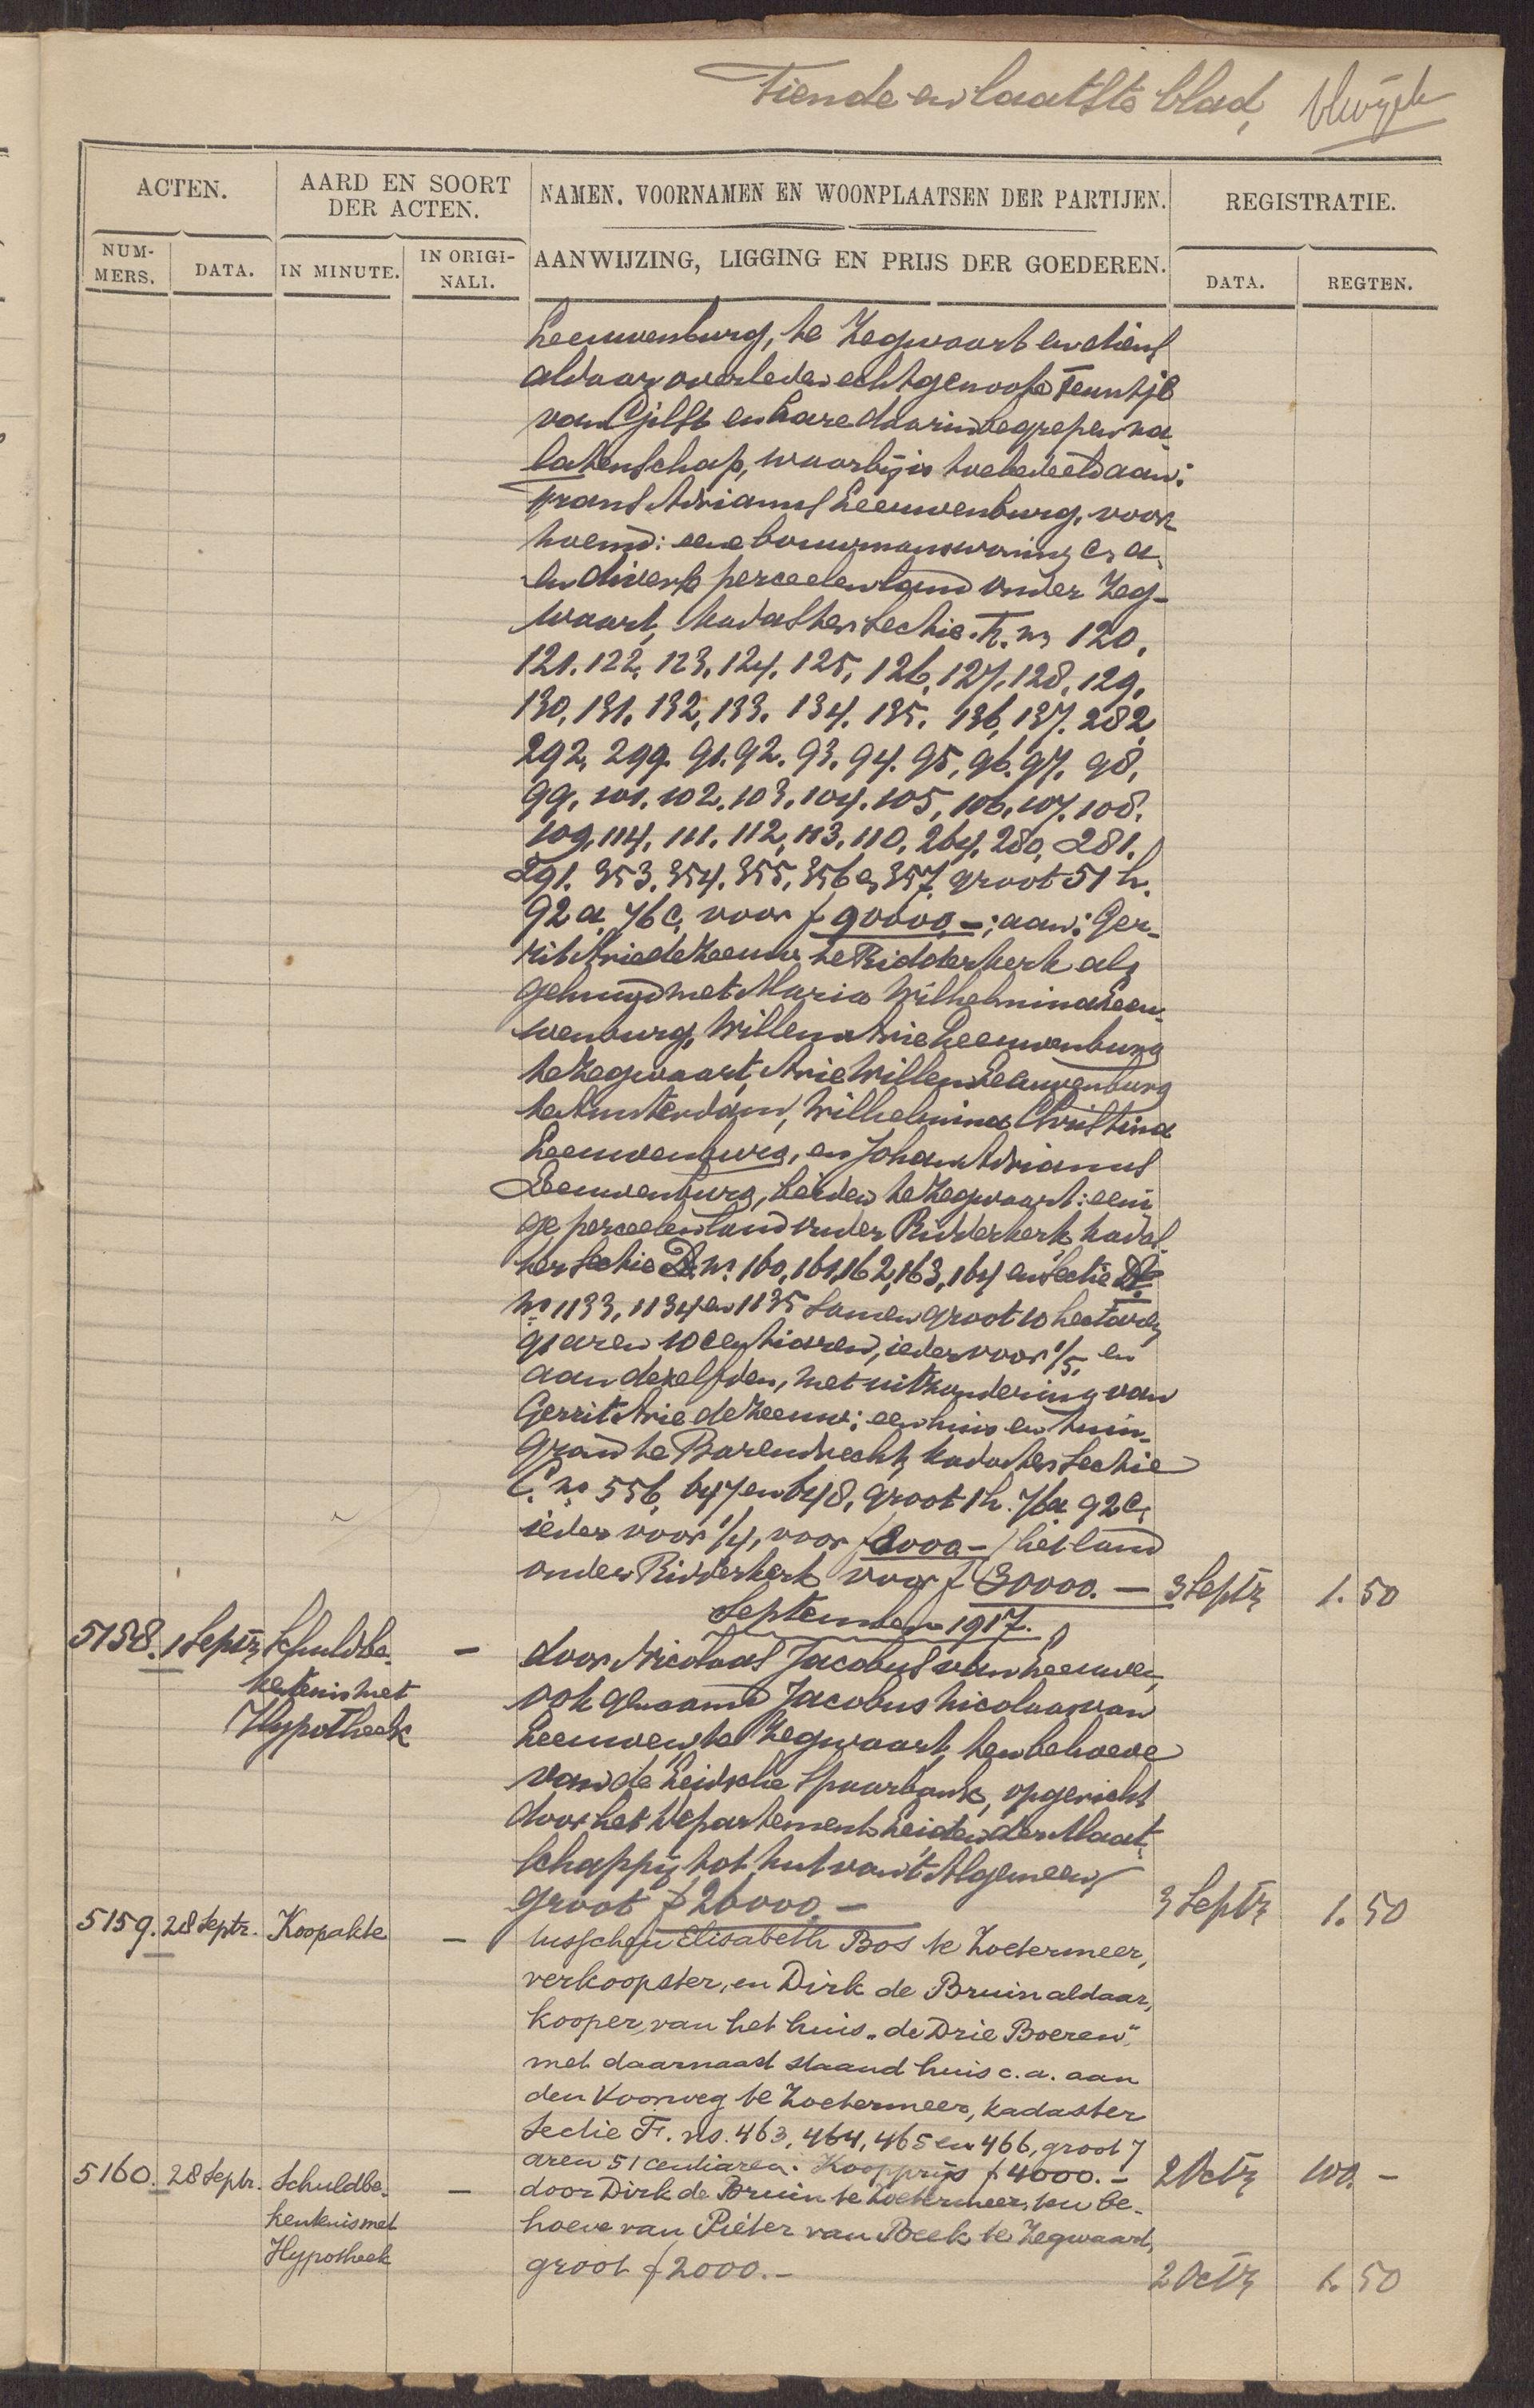 Tiende en laatste blad,
ACTEN.
AARD EN SOORT
DER ACTEN.
NAMEN, VOORNAMEN EN WOONPLAATSEN DER PARTIJEN.
REGISTRATIE.
NUM-
MERS.
DATA.
IN MINUTE.
IN ORIGI-
NALI.
AANWIJZING, LIGGING EN PRIJS DER GOEDEREN.
DATA.
REGTEN.
Leeuwenburg, te Zegwaart en diens
aldaar overleden echtgenoote Teuntje
van Gilst en hare daarin begrepen na-
latenschap, waarbij is toebedeeld aan:
Frans Adrianus Leeuwenburg, voor-
noemd: eene bouwmanswoning c.a.
en diverse perceelen land onder Zeg-
waart, kadaster sectie F. ns 120,
121. 122, 123, 124, 125, 126, 127, 128, 129,
130, 131, 132, 133, 134, 135, 136, 137, 282,
292, 299. 91. 92. 93. 94. 95, 96. 97. 98,
99, 101. 102. 103. 104. 105, 106. 107. 108.
109, 114, 111. 112, 113, 110, 264, 280, 281,
291. 353. 354. 355. 356 en 357, groot 51 h.
92 a. 76 c, voor f 90000,-; aan: Ger-
rit Arie de Zeeuw te Ridderkerk als
gehuwd met Maria Wilhelmina Leeu-
wenburg, Willem Arie Leeuwenburg
te Zegwaart, Arie Willem Leeuwenburg
te Amsterdam, Wilhelmina Christina
Leeuwenburg, en Johan Adrianus
Leeuwenburg, beiden te Zegwaart: eeni-
ge perceelen land onder Ridderkerk kadas-
ter sectie D. ns. 160, 161, 162, 163, 164 en sectie
ns 1133, 1134 en 1135 samen groot 10 hectaren
91 aren 10 centiaren, ieder voor 1/5, en
aan dezelfden, met uitzondering van
Gerrit Arie de Zeeuw: een huis en tuin-
grond te Barendrecht, kadaster sectie
C. ns 556, 647 en 648, groot 1 h. 76 a 92 c,
ieder voor 1/4, voor f 8000.- het land
onder Ridderkerk voor f 30000.- 3 Septr 1.50
September 1917.
5158. 1 Septr Schuldbe- - door Nicolaas Jacobus van Leeuwen,
kentenis met ook genaamd Jacobus Nicolaas van
Hypotheek Leeuwen te Zegwaart, ten behoeve
van de Leidsche Spaarbank, opgericht
door het Departement Leiden der Maat-
schappij tot Nut van 't Algemeen,
groot f 26000.- 3 Septr 1.50
5159. 28 Septr. Koopakte - tusschen Elisabeth Bos te Zoetermeer,
verkoopster, en Dirk de Bruin aldaar,
kooper, van het huis „de Drie Boeren"
met daarnaast staand huis c.a. aan
den Voorweg te Zoetermeer, kadaster
sectie F. ns. 463, 464, 465 en 466, groot 7
aren 51 centiaren. Koopprijs f 4000.- 2 Octr 100.-
5160. 28 Septr. Schuldbe- - door Dirk de Bruin te Zoetermeer, ten be-
kentenis met hoeve van Pieter van Beek te Zegwaart,
Hypotheek groot f 2000.- 2 Octr 1.50